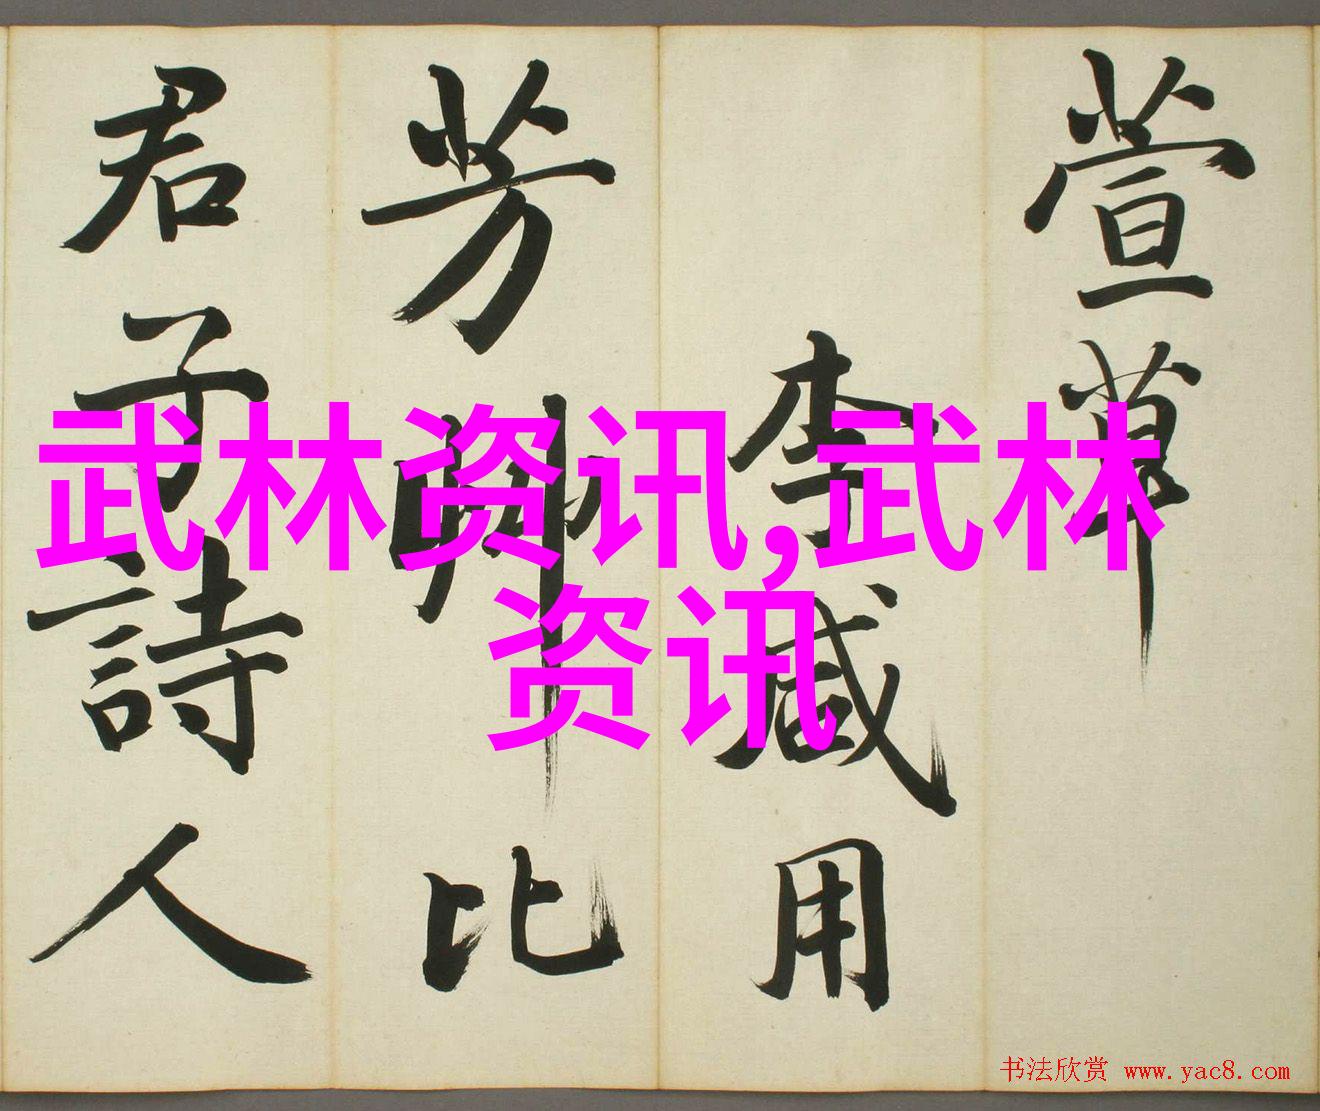 萱草
李咸用
芳艸比
君子詩人
武林资讯,武林
资讯
书法欣赏 www.yac8.com